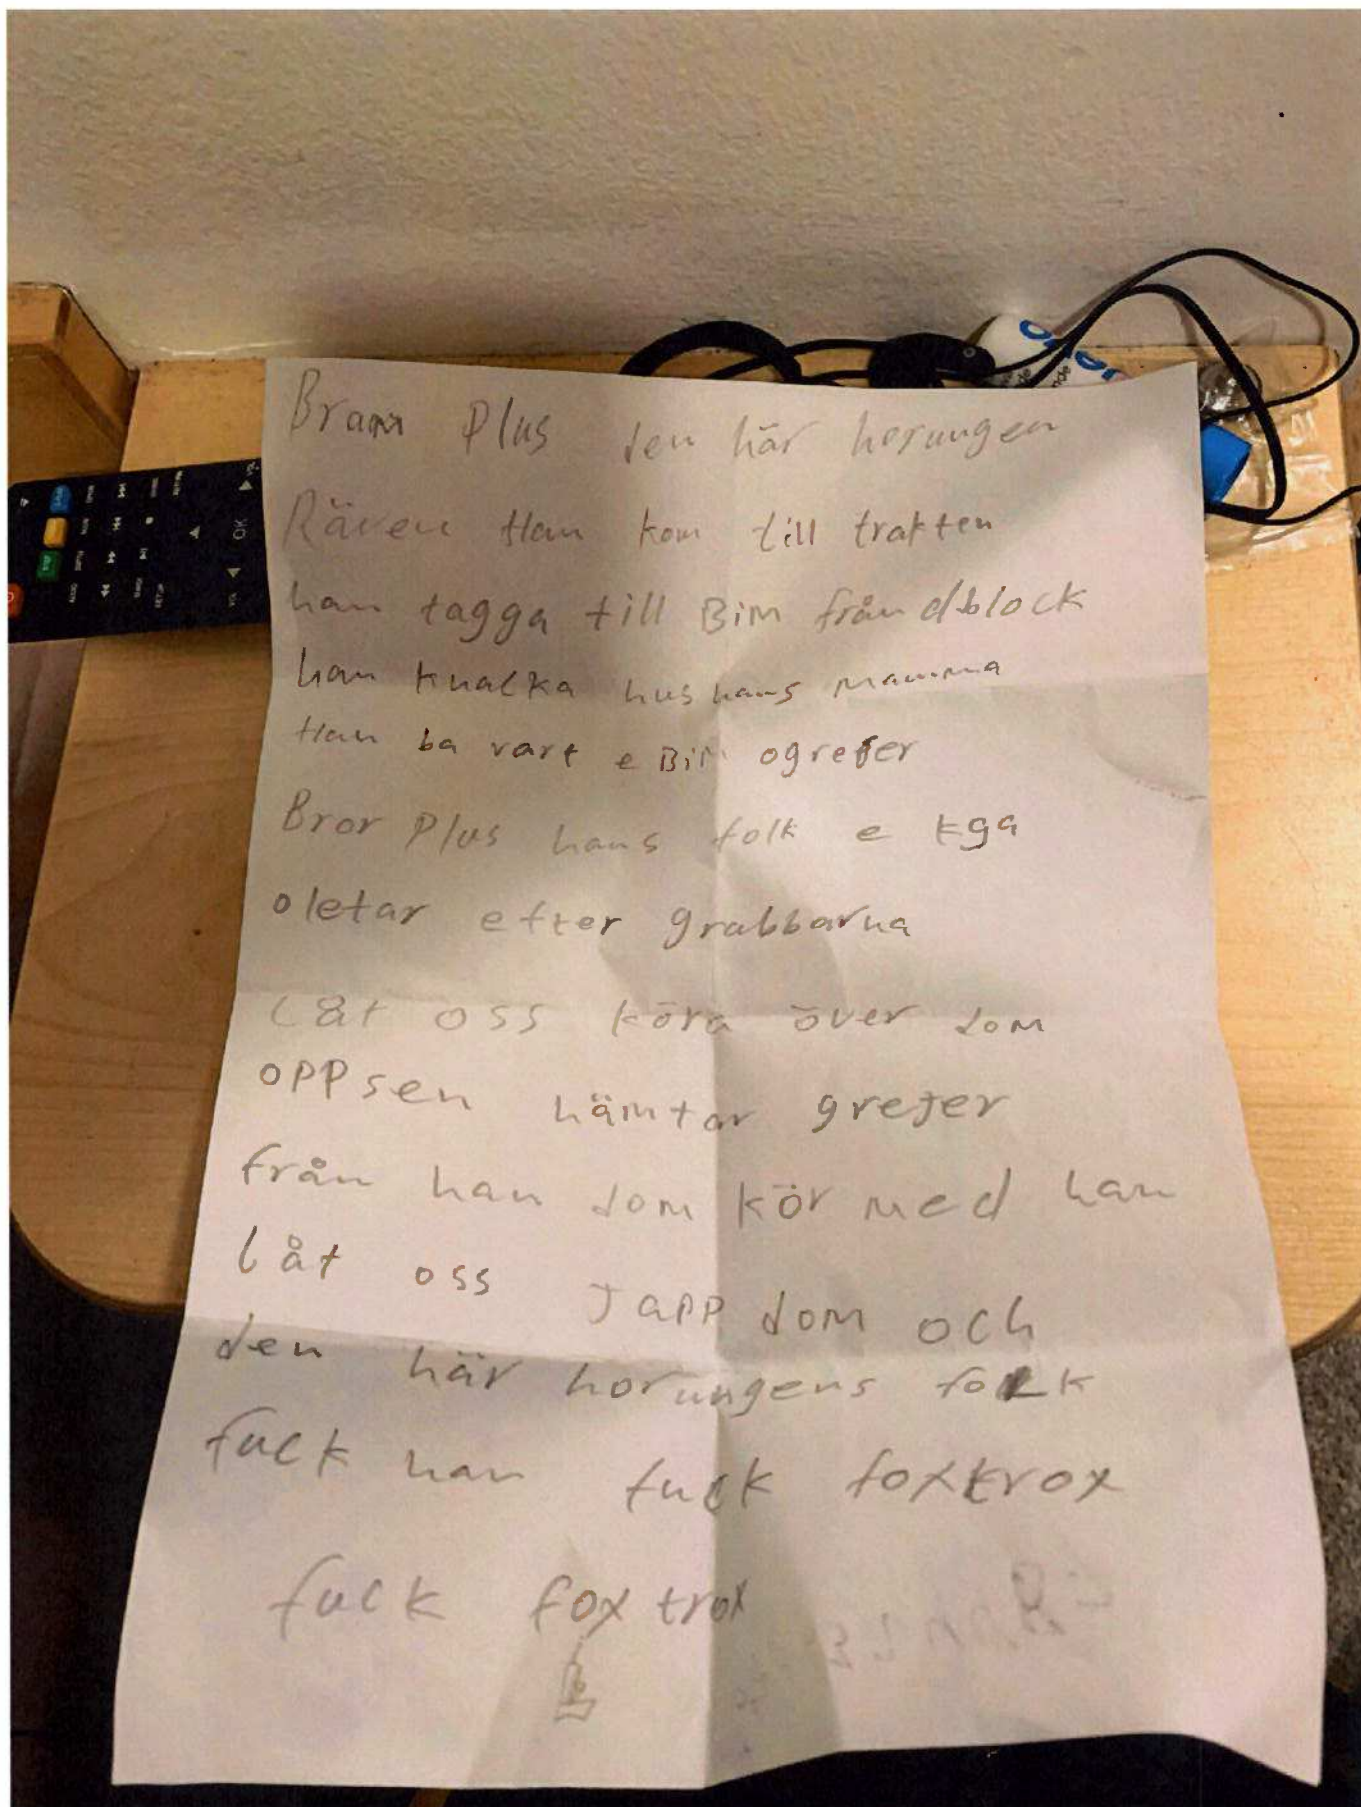 Bram Plus den här horungen
Räven Han kom till trakten
han tagga till BiM från dblock
han knacka hus hans mamma
Han ba vart e BiM ogrejer
Bror Plus hans folk e kga
oletar efter grabbarna
Låt oss köra över dom
oppsen hämtar grejer
från han som kör med han
låt oss Japp dom och
den här horungens folk
fuck han fuck foxtrox
fuck foxtrox
OK
VOL